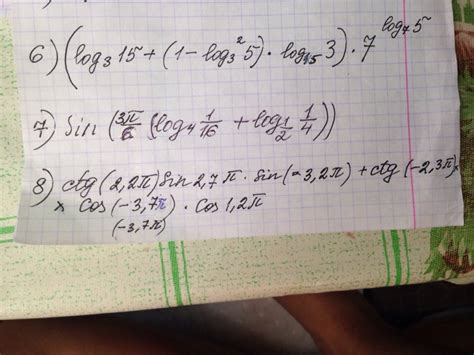 6) (log₃15 + (1 - log₃²5) · log₁₅3) · 7^(log₇5)
7) Sin (3π/6 (log₄ 1/16 + log_(1/2) 1/4))
8) ctg(2,2π) sin 2,7π · sin(-3,2π) + ctg(-2,3π) ×
× cos(-3,7π) · cos 1,2π
(-3,7π)